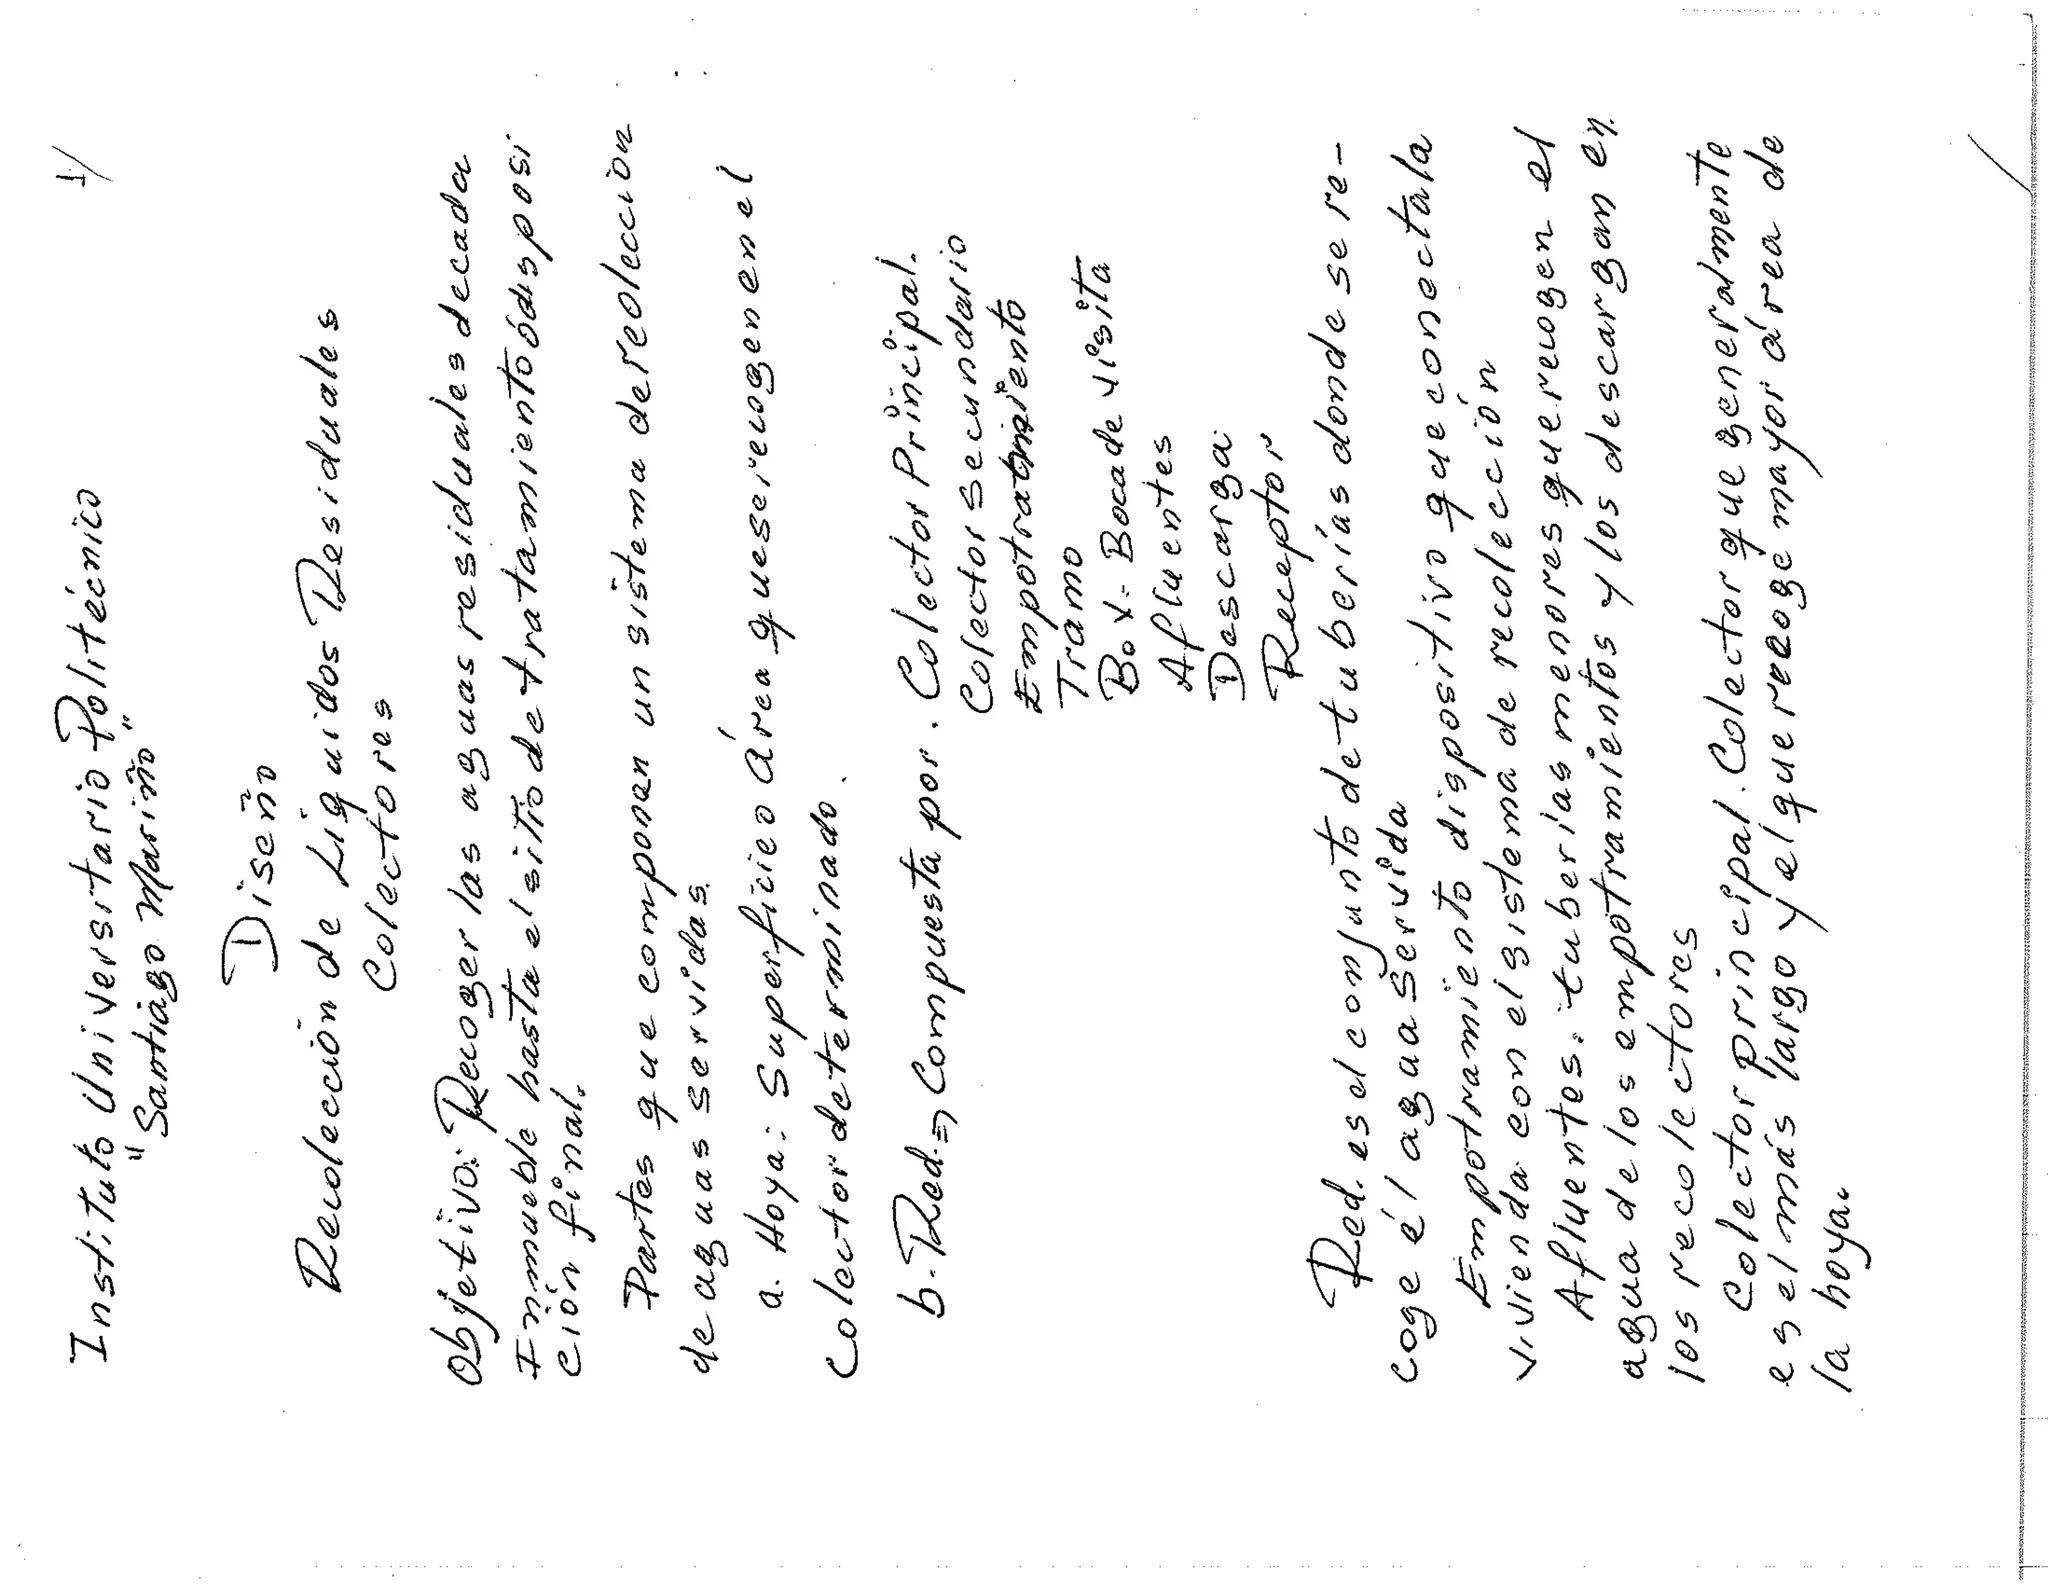 1/
Instituto Universitario Politécnico
"Santiago Mariño"
Diseño
Recolección de Liquidos Residuales
Colectores
Objetivo: Recoger las aguas residuales de cada
Inmueble hasta el sitio de tratamiento ó disposi
ción final.
Partes que componen un sistema de reolección
de aguas servidas.
a. Hoya: Superficie o Área que se recogen en el
Colector determinado.
b. Red => Compuesta por. Colector Principal.
Colector Secundario
Empotramiento
Tramo
B.v.- Boca de visita
Afluentes
Descarga
Receptor
Red. es el conjunto de tuberías donde se re-
coge él agua servida
Empotramiento dispositivo que conecta la
vivienda con el sistema de recolección
Afluentes: tuberías menores que recogen el
agua de los empotramientos y los descargan en
los recolectores
Colector Principal. Colector que generalmente
es el más largo y el que recoge mayor área de
la hoya.